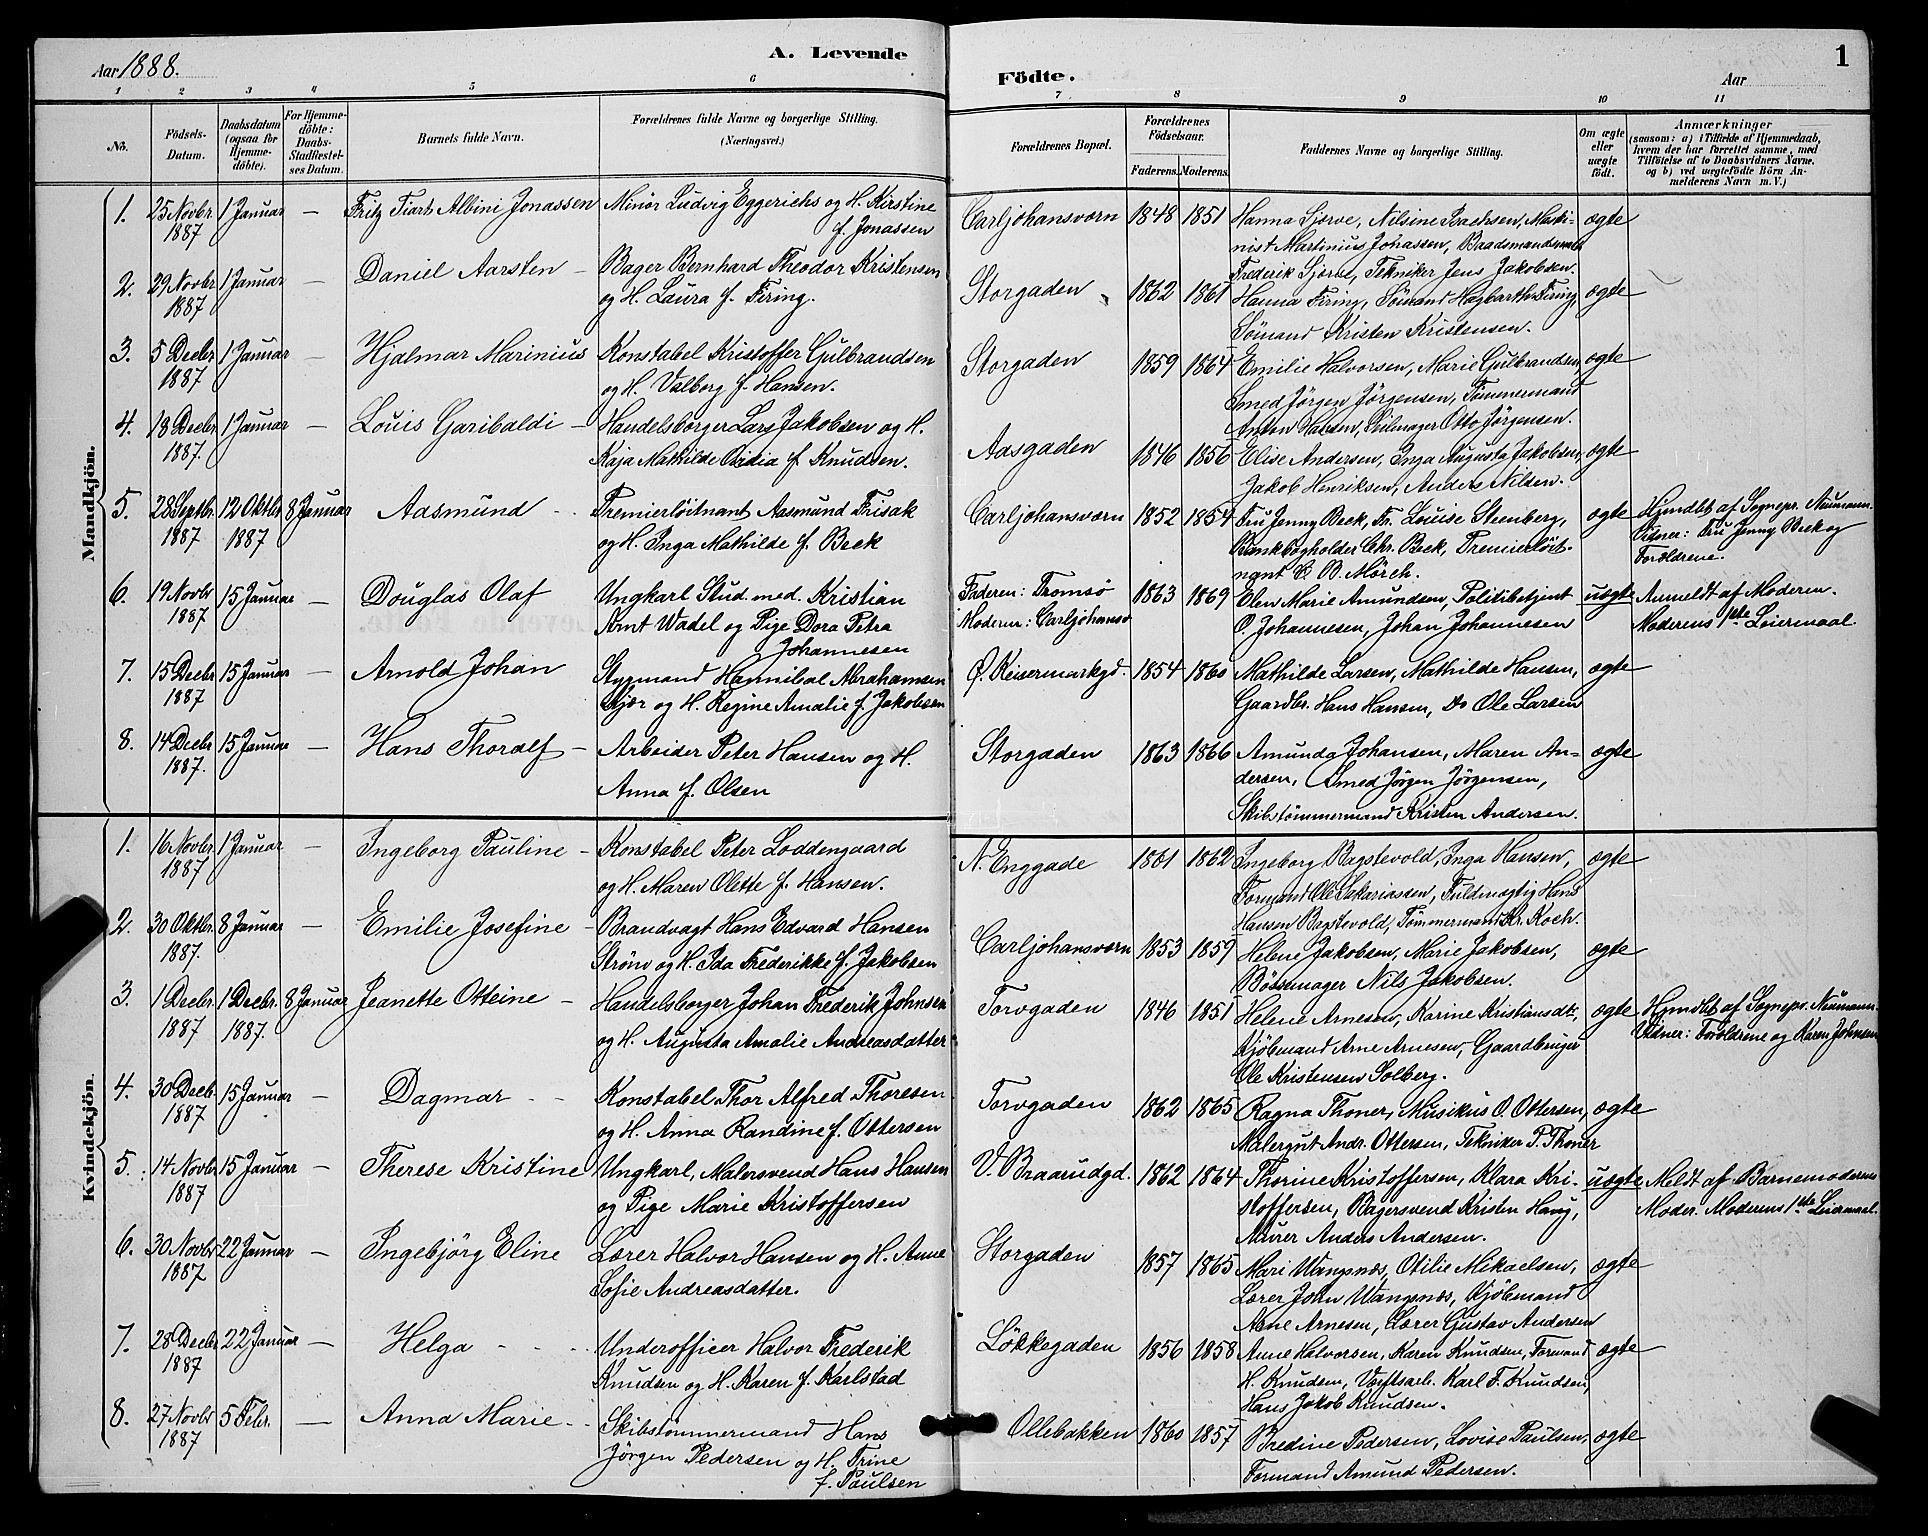 Aar 1888.
A. Levende
Födte.
Aar
1
1 2 3 4 5 6 7 8 9 10 11
No.
Födsels-Datum.
Daabsdatum (ogsaa for Hjemmedöbte).
For Hjemmedöbte: Daabs-Stadfestelses Datum.
Barnets fulde Navn.
Forældrenes fulde Navne og borgerlige Stilling. (Næringsvei.)
Forældrenes Bopæl.
Forældrenes Födselsaar.
Faderens. Moderens.
Faddernes Navne og borgerlige Stilling.
Om ægte eller uægte födt.
Anmærkninger
(saasom: a) i Tilfælde af Hjemmedaab,
hvem der har forrettet samme, med
Tilföielse af to Daabsvidners Navne.
og b) ved uægtefödte Börn An-
melderens Navn m. V.)
Mandkjön.
1. 25 Novbr 1887 1 Januar — Fritz Tiart Albini Jonassen Minör Ludvig Eggerichs og H. Kirstine
f. Jonassen
Carljohansværn 1848 1851 Hanna Sjørve, Nilsine, Maski-
nist Martinius Johassen, Baadsmandsmat
Frederik Sjørve, Tekniker Jens Jakobsen. ægte
2. 29 Novbr 1887 1 Januar — Daniel Aarsten — Bager Bernhard Theodor Kristensen
og H. Laura f. Firing.
Storgaden 1862 1861 Hanna Firing, Sömand Hagbarth Firing,
Sömand Kristen Kristensen. ægte
3. 5 Decbr 1887 1 Januar — Hjalmar Marinius Konstabel Kristoffer Gulbrandsen
og H. Valborg f. Hansen.
Storgaden 1859 1864 Emilie Halvorsen, Marie Gulbrandsen,
Smed Jörgen Jörgensen, Tömmermand
Anton Hansen, Seilmager Otto Jörgensen. ægte
4. 18 Decbr 1887. 1 Januar — Louis Garibaldi — Handelsborger Lars Jakobsen og H.
Kaja Mathilde Ovidia f. Knudsen.
Aasgaden 1846 1856 Elise Andersen, Inga Augusta Jakobsen,
Jakob Henriksen, Anders Nilsen. ægte
5. 28 Septbr. 1887 12 Oktbr 1887 8 Januar Aasmund — Premierlöitnant Aasmund Frisak
og H. Inga Mathilde f. Beck
Carljohansværn 1852 1854 Fru Jenny Beck, Fr. Louise Steenberg,
Bankbogholder Chr. Beck, Premierlöit-
nant C. B. Mörch. ægte
Hjmdbt af Sognepr. Neumann.
Vidner: Fru Jenny Beck og
Forældrene.
6. 19 Novbr 1887 15 Januar — Douglas Olaf Ungkarl Stud. med. Kristian
Arnt Wadel og Pige Dora Petra
Johannesen
Faderen: Tromsö
Moderen: Carljohansv 1863 1869 Olen Marie Amundsen, Politibetjent
O. Johannesen, Johan Johannesen uægte
Anmeldt af Moderen.
Moderens 1ste Leiermaal.
7. 15 Decbr 1887 15 Januar — Arnold Johan Hannibal Abrahamsen
Kjær og H. Regine Amalie f. Jakobsen
Ø. Keisermarkgd. 1854 1860 Mathilde Larsen, Mathilde Hansen,
Gaardbr. Hans Hansen, Do Ole Larsen ægte
8. 14 Decbr 1887. 15 Januar — Hans Thoralf — Arbeider Peter Hansen og H.
Anna f. Olsen
Storgaden 1863 1866 Amunda Johansen, Maren An-
dersen, Smed Jörgen Jörgensen,
Skibstömmermand Kristen Andersen. ægte
Kvindekjön.
1. 16 Novbr 1887 1 Januar — Ingeborg Pauline — Konstabel Peter Loddengaard
og H. Maren Olette f. Hansen.
N. Enggade 1861 1862 Ingeborg Bagstevold, Inga Hansen,
Formand Ole Sakariassen, Fuldmægtig Hans
Hansen Bagstevold, Tömmermand Kr. Koch. ægte
2. 30 Oktbr. 1887. 8 Januar — Emilie Josefine — Brandvagt Hans Edvard Hansen
Ström og H. Ida Frederikke f. Jakobsen
Carljohansværn 1853 1859 Helene Jakobsen, Marie Jakobsen,
Bössemager Nils Jakobsen. ægte
3. 1 Decbr. 1887 1 Decbr. 1887. 8 Januar Jeanette Otteine — Handelsborger Johan Frederik Johnsen
og H. Augusta Amalie Andreasdatter
Torvgaden 1846 1851 Helene Arnesen, Karine Kristiansdtr,
Kjöbmand Arne Arnesen, Gaardbruger
Ole Kristensen Solberg. ægte
Hjmdbt af Sognepr. Neumann.
Vidner: Forældrene og Karen Johnsen
4. 30 Decbr. 1887 15 Januar — Dagmar — Konstabel Thor Alfred Thoresen
og H. Anna Randine f. Ottersen
Torvgaden 1862 1865 Ragna Thoner, Musikus O. Ottersen,
Malergut Andr. Ottersen, Tekniker P. Thoner ægte
5. 14 Novbr 1887 15 Januar — Therese Kristine Ungkarl, Malersvend Hans Hansen
og Pige Marie Kristoffersen
V. Braarudgd. 1862 1864 Thorine Kristoffersen, Klara Kri-
stoffersen, Bagersvend Kristen Haug,
Murer Anders Andersen. uægte
Meldt af Barnemoderens
Moder. Moderens 1ste Leiermaal.
6. 30 Novbr 1887 22 Januar — Ingebjörg Eline Lærer Halvor Hansen og H. Anne
Sofie Andreasdatter.
Storgaden 1857 1865 Mari Wangsnæs, Otilie Mikaelsen,
Lærer John Wangsnæs, Kjöbmand
Arne Arnesen, Lærer Gustav Andersen ægte
7. 28 Decbr 1887 22 Januar — Helga — Underofficer Halvor Frederik
Knudsen og H. Karen f. Karlstad
Løkkegaden 1856 1858 Anne Halvorsen, Karen Knudsen, Formand
H. Knudsen, Værftsarb. Karl F. Knudsen,
Hans Jakob Knudsen. ægte
8. 27 Novbr 1887 5 Febr. — Anna Marie — Skibstömmermand Hans
Jörgen Pedersen og H. Trine
f. Paulsen
Ollebakken 1860 1857 Bredine Pedersen, Lovise Paulsen,
Formand Amund Pedersen. ægte